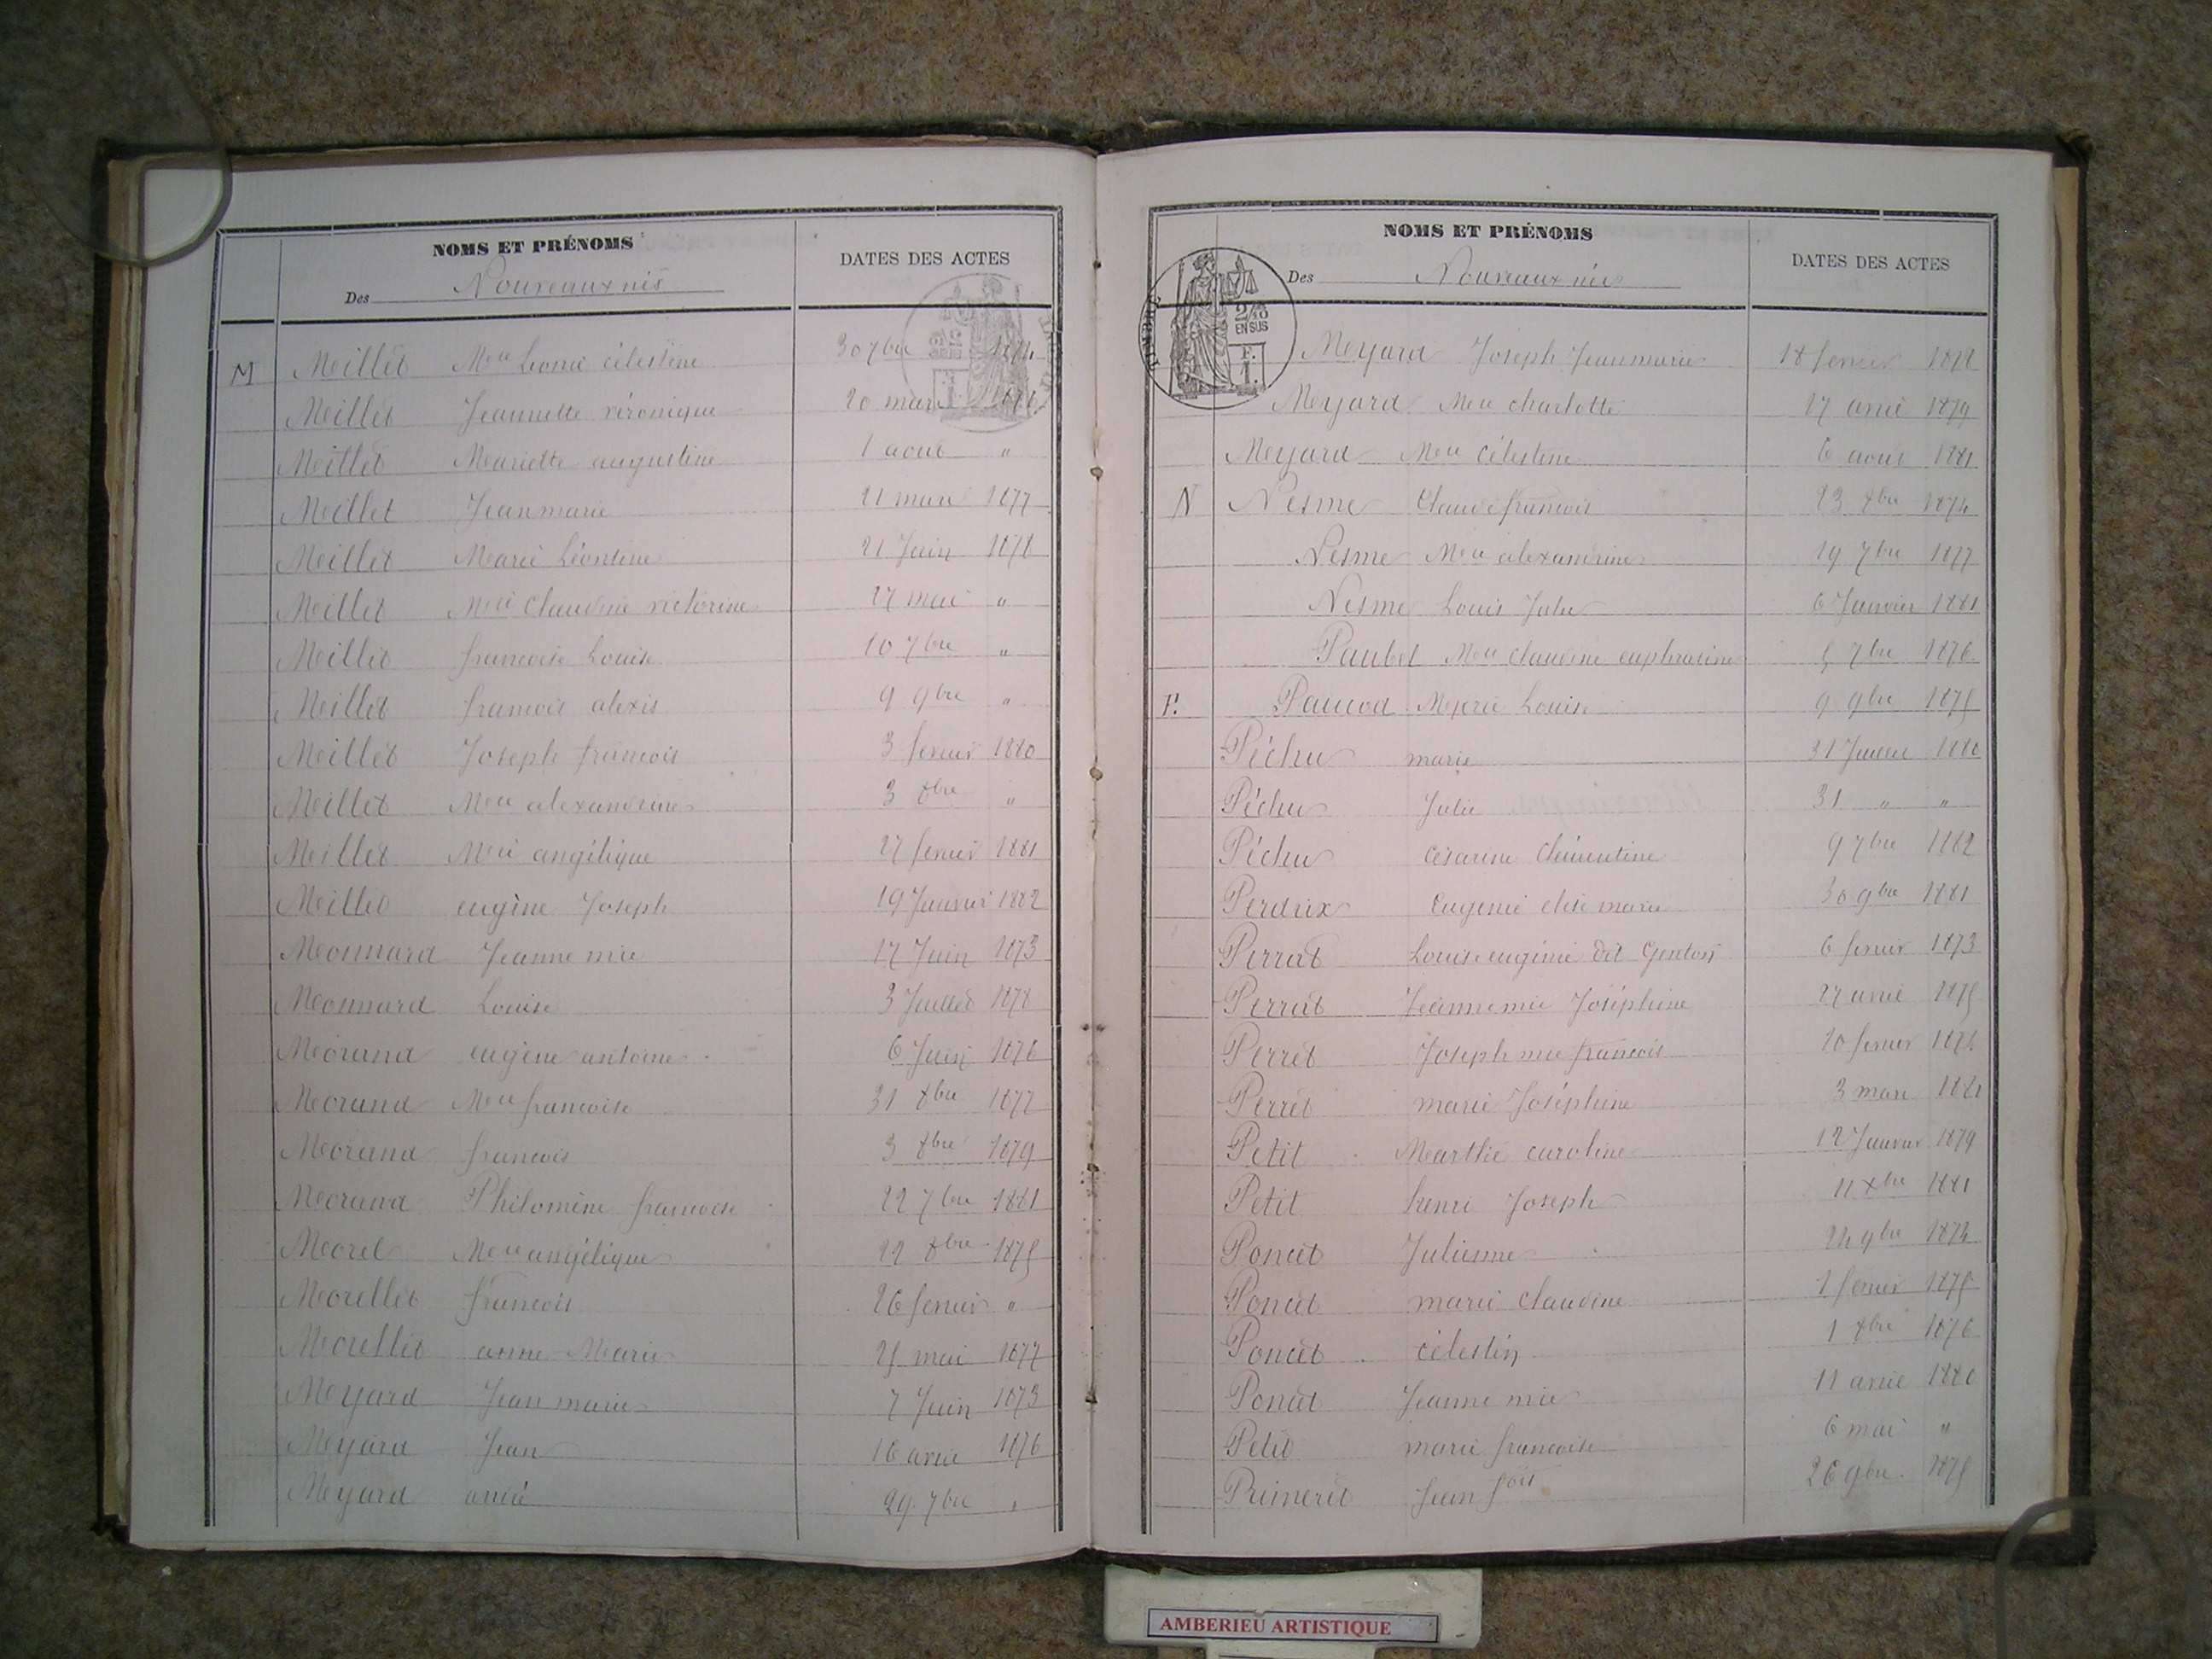 NOMS ET PRÉNOMS
Des Nouveaux nés
DATES DES ACTES
M Meillet Mie célestine 30 7bre
Meillet Jeannette véronique 20 mars
Meillet Mariette augustine 1 aout "
Meillet Jean marie 21 mars 1877
Meillet Marie Léontine 21 Juin 1878
Meillet Mie Claudine victorine 27 mai "
Meillet francoise Louise 10 7bre "
Meillet francois alexis 9 9bre "
Meillet Joseph francois 3 fevrier 1880
Meillet Mie alexandrine 3 8bre "
Meillet Mie angélique 27 fevrier 1881
Meillet eugène Joseph 19 Janvier 1882
Monnard Jeanne mie 17 Juin 1873
Monnard Louise 3 Juillet 1878
Morand eugène antoine 6 Juin 1876
Morand Mie francoise 31 8bre 1877
Morand francois 3 8bre 1879
Morand Philomène francoise 22 7bre 1881
Morel Mie angélique 22 8bre 1875
Morellet francois 26 fevrier "
Morellet anne Marie 25 mai 1877
Moyard Jean marie 7 Juin 1873
Moyard Jean 16 avril 1876
Moyard 29 7bre "
NOMS ET PRÉNOMS
Des Nouveaux nés
DATES DES ACTES
TIMBRE
2/10
EN SUS
F.
1.
Moyard Joseph Jean marie 18 fevrier 1878
Moyard Mie charlotte 17 avril 1879
Moyard Mie célestine 6 aout 1881
N Nesme Claude francois 23 8bre 1874
Nesme Mie alexandrine 19 7bre 1877
Nesme Louis Jules 6 Janvier 1881
Paubel Mie claudine euphrasine 5 7bre 1876
P. Paucod Marie Louise 9 9bre 1875
Péchu marie 31 Juillet 1880
Péchu Julie 31 " "
Péchu césarine Clémentine 9 7bre 1882
Perdrix Eugenie elise marie 30 9bre 1881
Perrat Louise eugénie dit Genton 6 fevrier 1873
Perrat Jeanne mie Joséphine 27 avril 1875
Perret Joseph mie francois 10 fevrier
Perret marie Joséphine 3 mars
Petit Marthe caroline 12 Janvier 1879
Petit henri Joseph 11 Xbre 1881
Poncet Julienne 24 9bre 1874
Poncet marie claudine 1 fevrier 1875
Poncet célestin 1 8bre 1876
Poncet Jeanne mie 11 avril 1880
Petit marie francoise 6 mai "
Jean fois 26 9bre 1875
AMBERIEU ARTISTIQUE